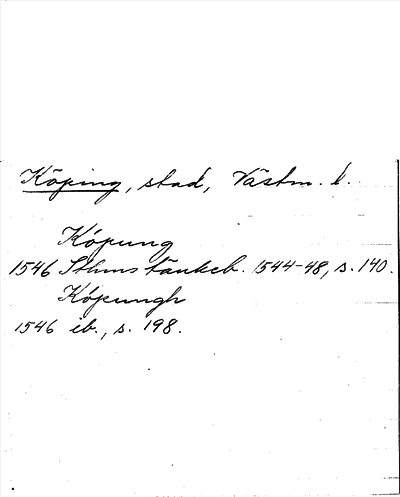 Köping, stad, Västm. l.
Köpung
1546 Sthms tänkeb. 1544-48, s. 140.
Köpungh
1546 ib., s. 198.